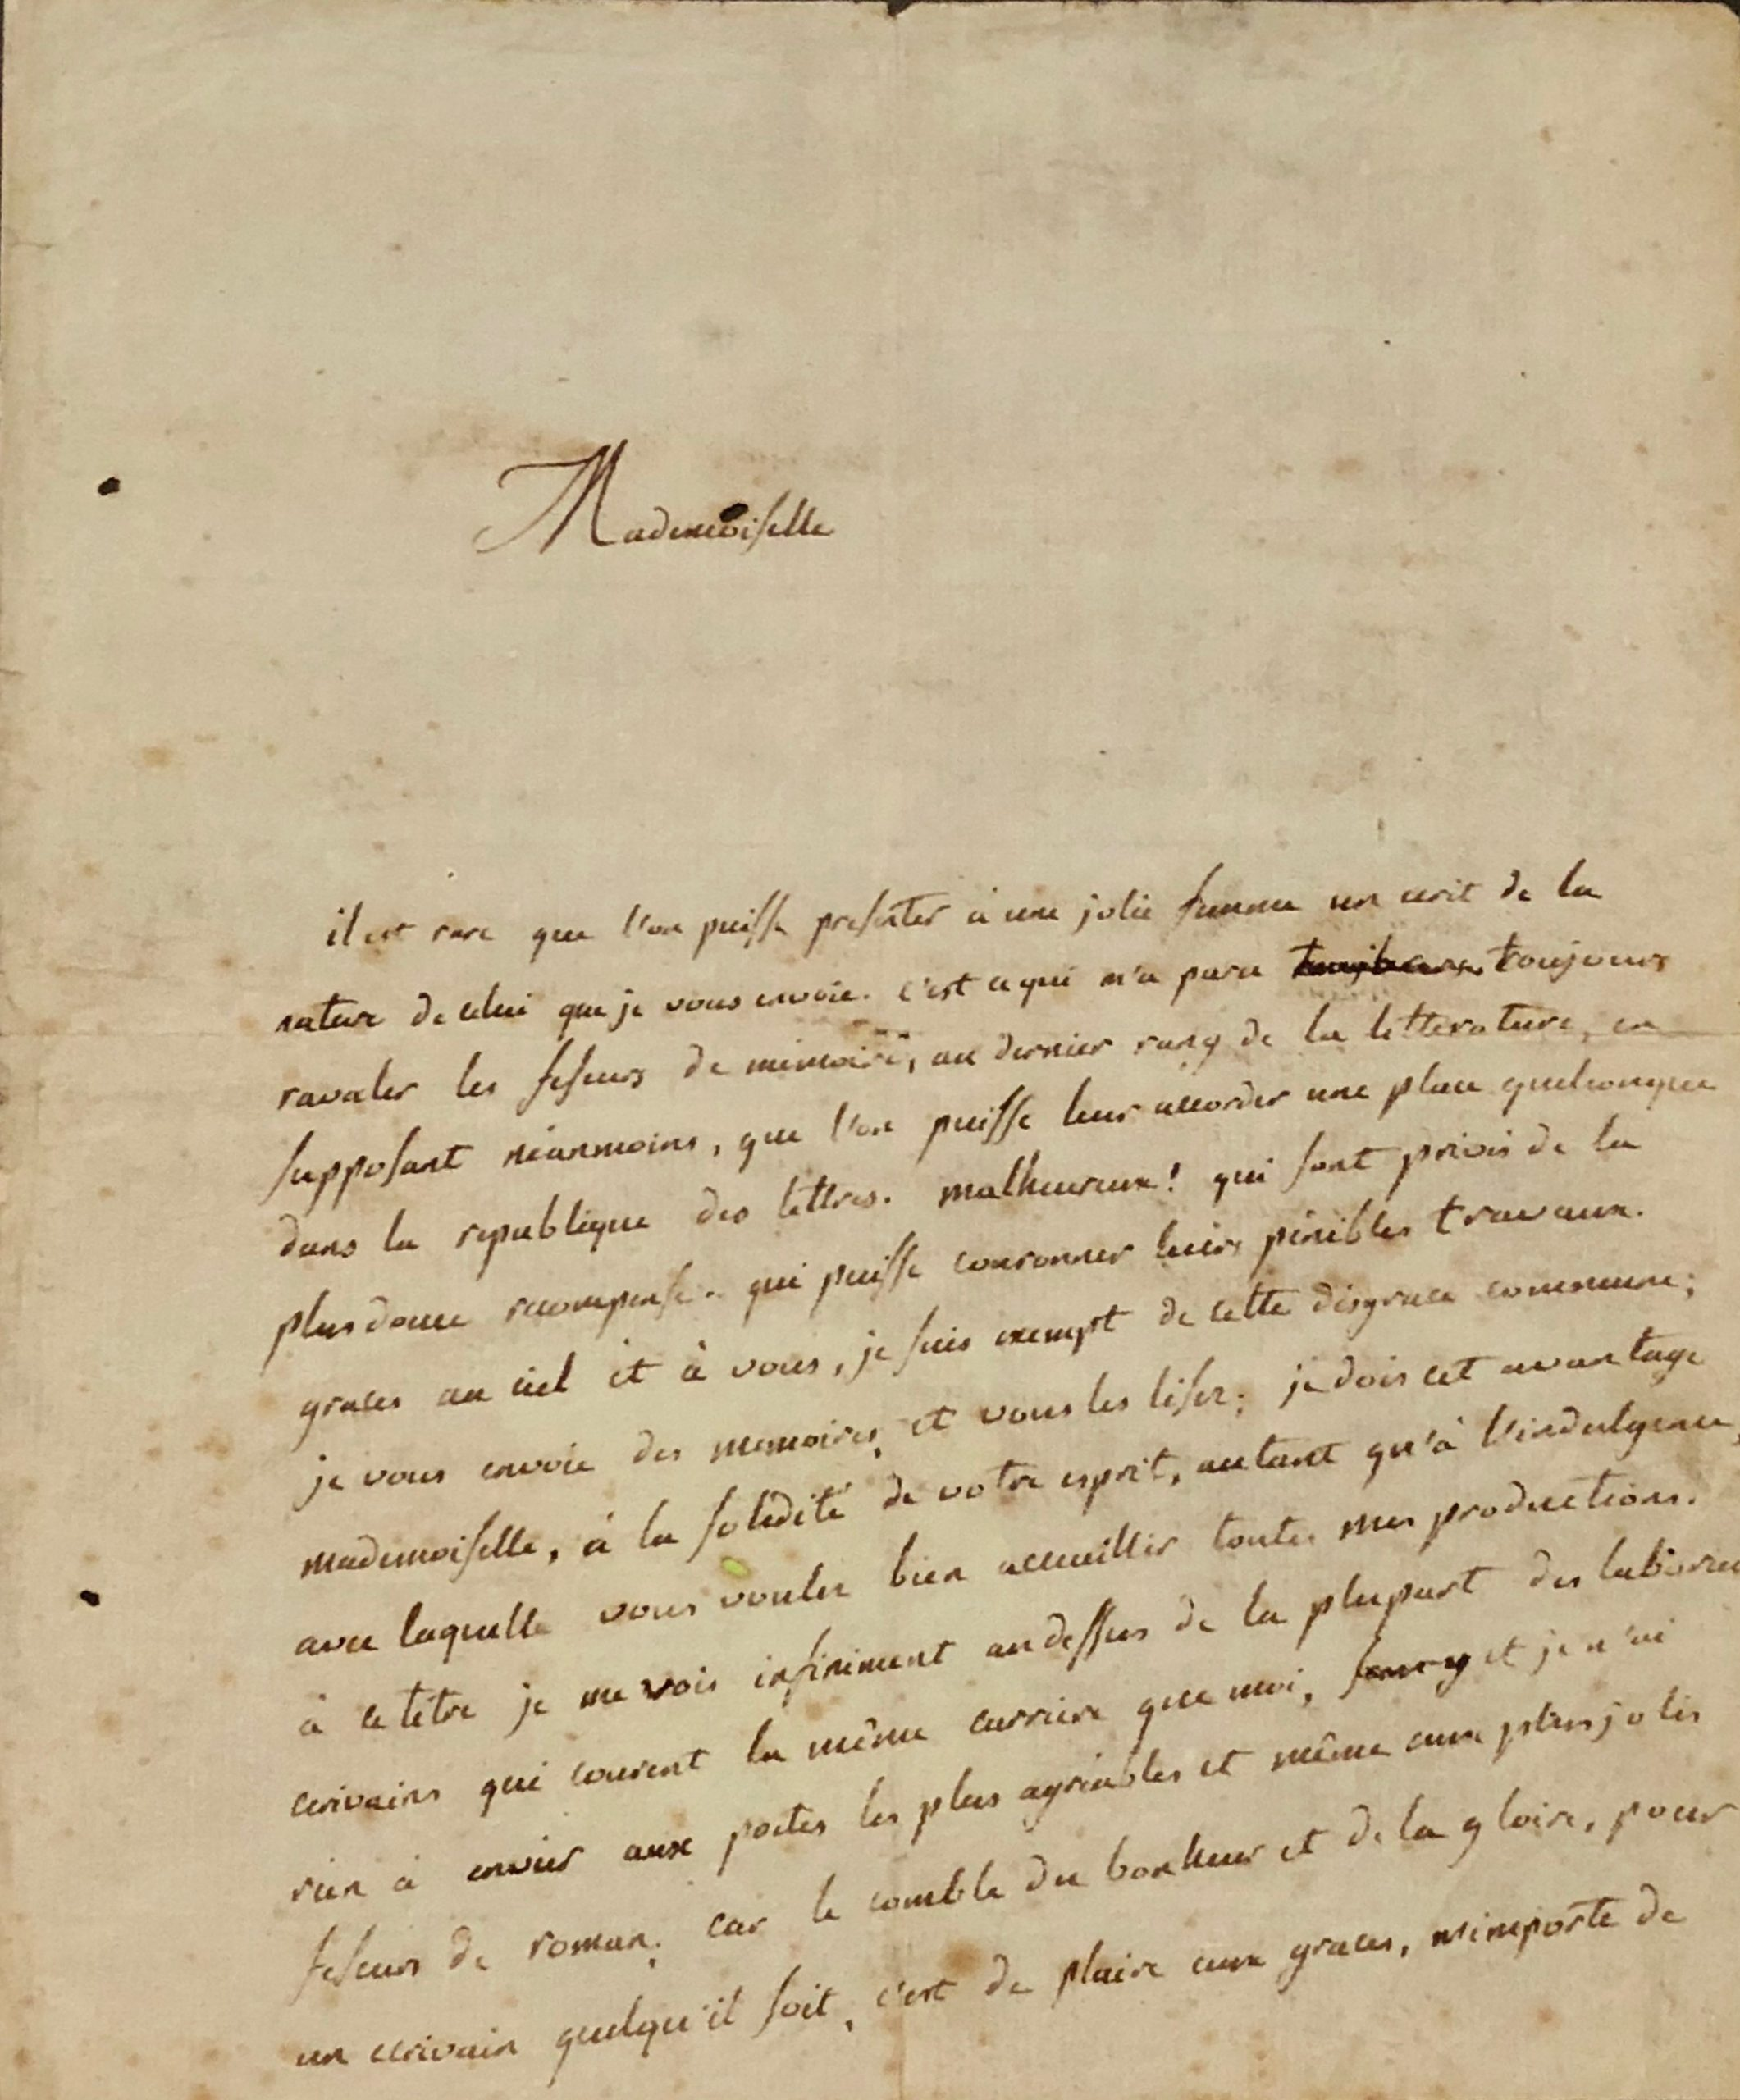 Mademoiselle
il est rare que l'on puisse presenter à une jolie femme un ecrit de la
nature de celui que je vous envoie. c'est ce qui m'a paru toujours
ravaler les feseurs de mémoire, au dernier rang de la litterature, en
supposant néanmoins, que l'on puisse leur accorder une place quelconque
dans la republique des lettres. malheureux! qui sont privés de la
plus douce recompense qui puisse couronner leurs pénibles travaux.
graces au ciel et à vous, je suis exempt de cette disgrace commune;
je vous envoie des memoires, et vous les lisez; je dois cet avantage
mademoiselle, à la solidité de votre esprit, autant qu'à l'indulgence,
avec laquelle vous voulez bien accueillir toutes mes productions.
à ce titre je me vois infiniment au dessus de la plupart des laborieu
ecrivains qui courent la même carriere que moi, et je n'ai
rien à envier aux poetes les plus agréables et même aux plus jolis
feseurs de roman. car le comble du bonheur et de la gloire, pour
un ecrivain quelqu'il soit, c'est de plaire aux graces, n'importe de